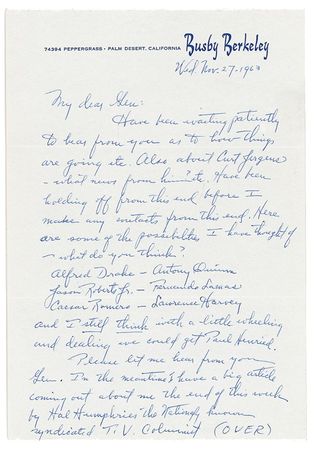 74394 PEPPERGRASS - PALM DESERT, CALIFORNIA Busby Berkeley
Wed. Nov. 27 - 1963
My dear Gen:
Have been waiting patiently
to hear from you as to how things
are going etc. Also about Curt Jergens
- what news from him? etc. Have been
holding off from this end before I
make any contacts from this end. Here
are some of the possibilties I have thought of
- what do you think?
Alfred Drake - Antony Quinn
Jason Roberts Jr. - Fernando Lamas
Caesar Romero - Lawrence Harvey
and I still think with a little wheeling
and dealing we could get Paul Henried.
Please let me hear from you
Gen. I'm the meantime I have a big article
coming out about me the end of this week
by Hal Humphries the Nationaly known
syndicated T.V. Columnist (OVER)